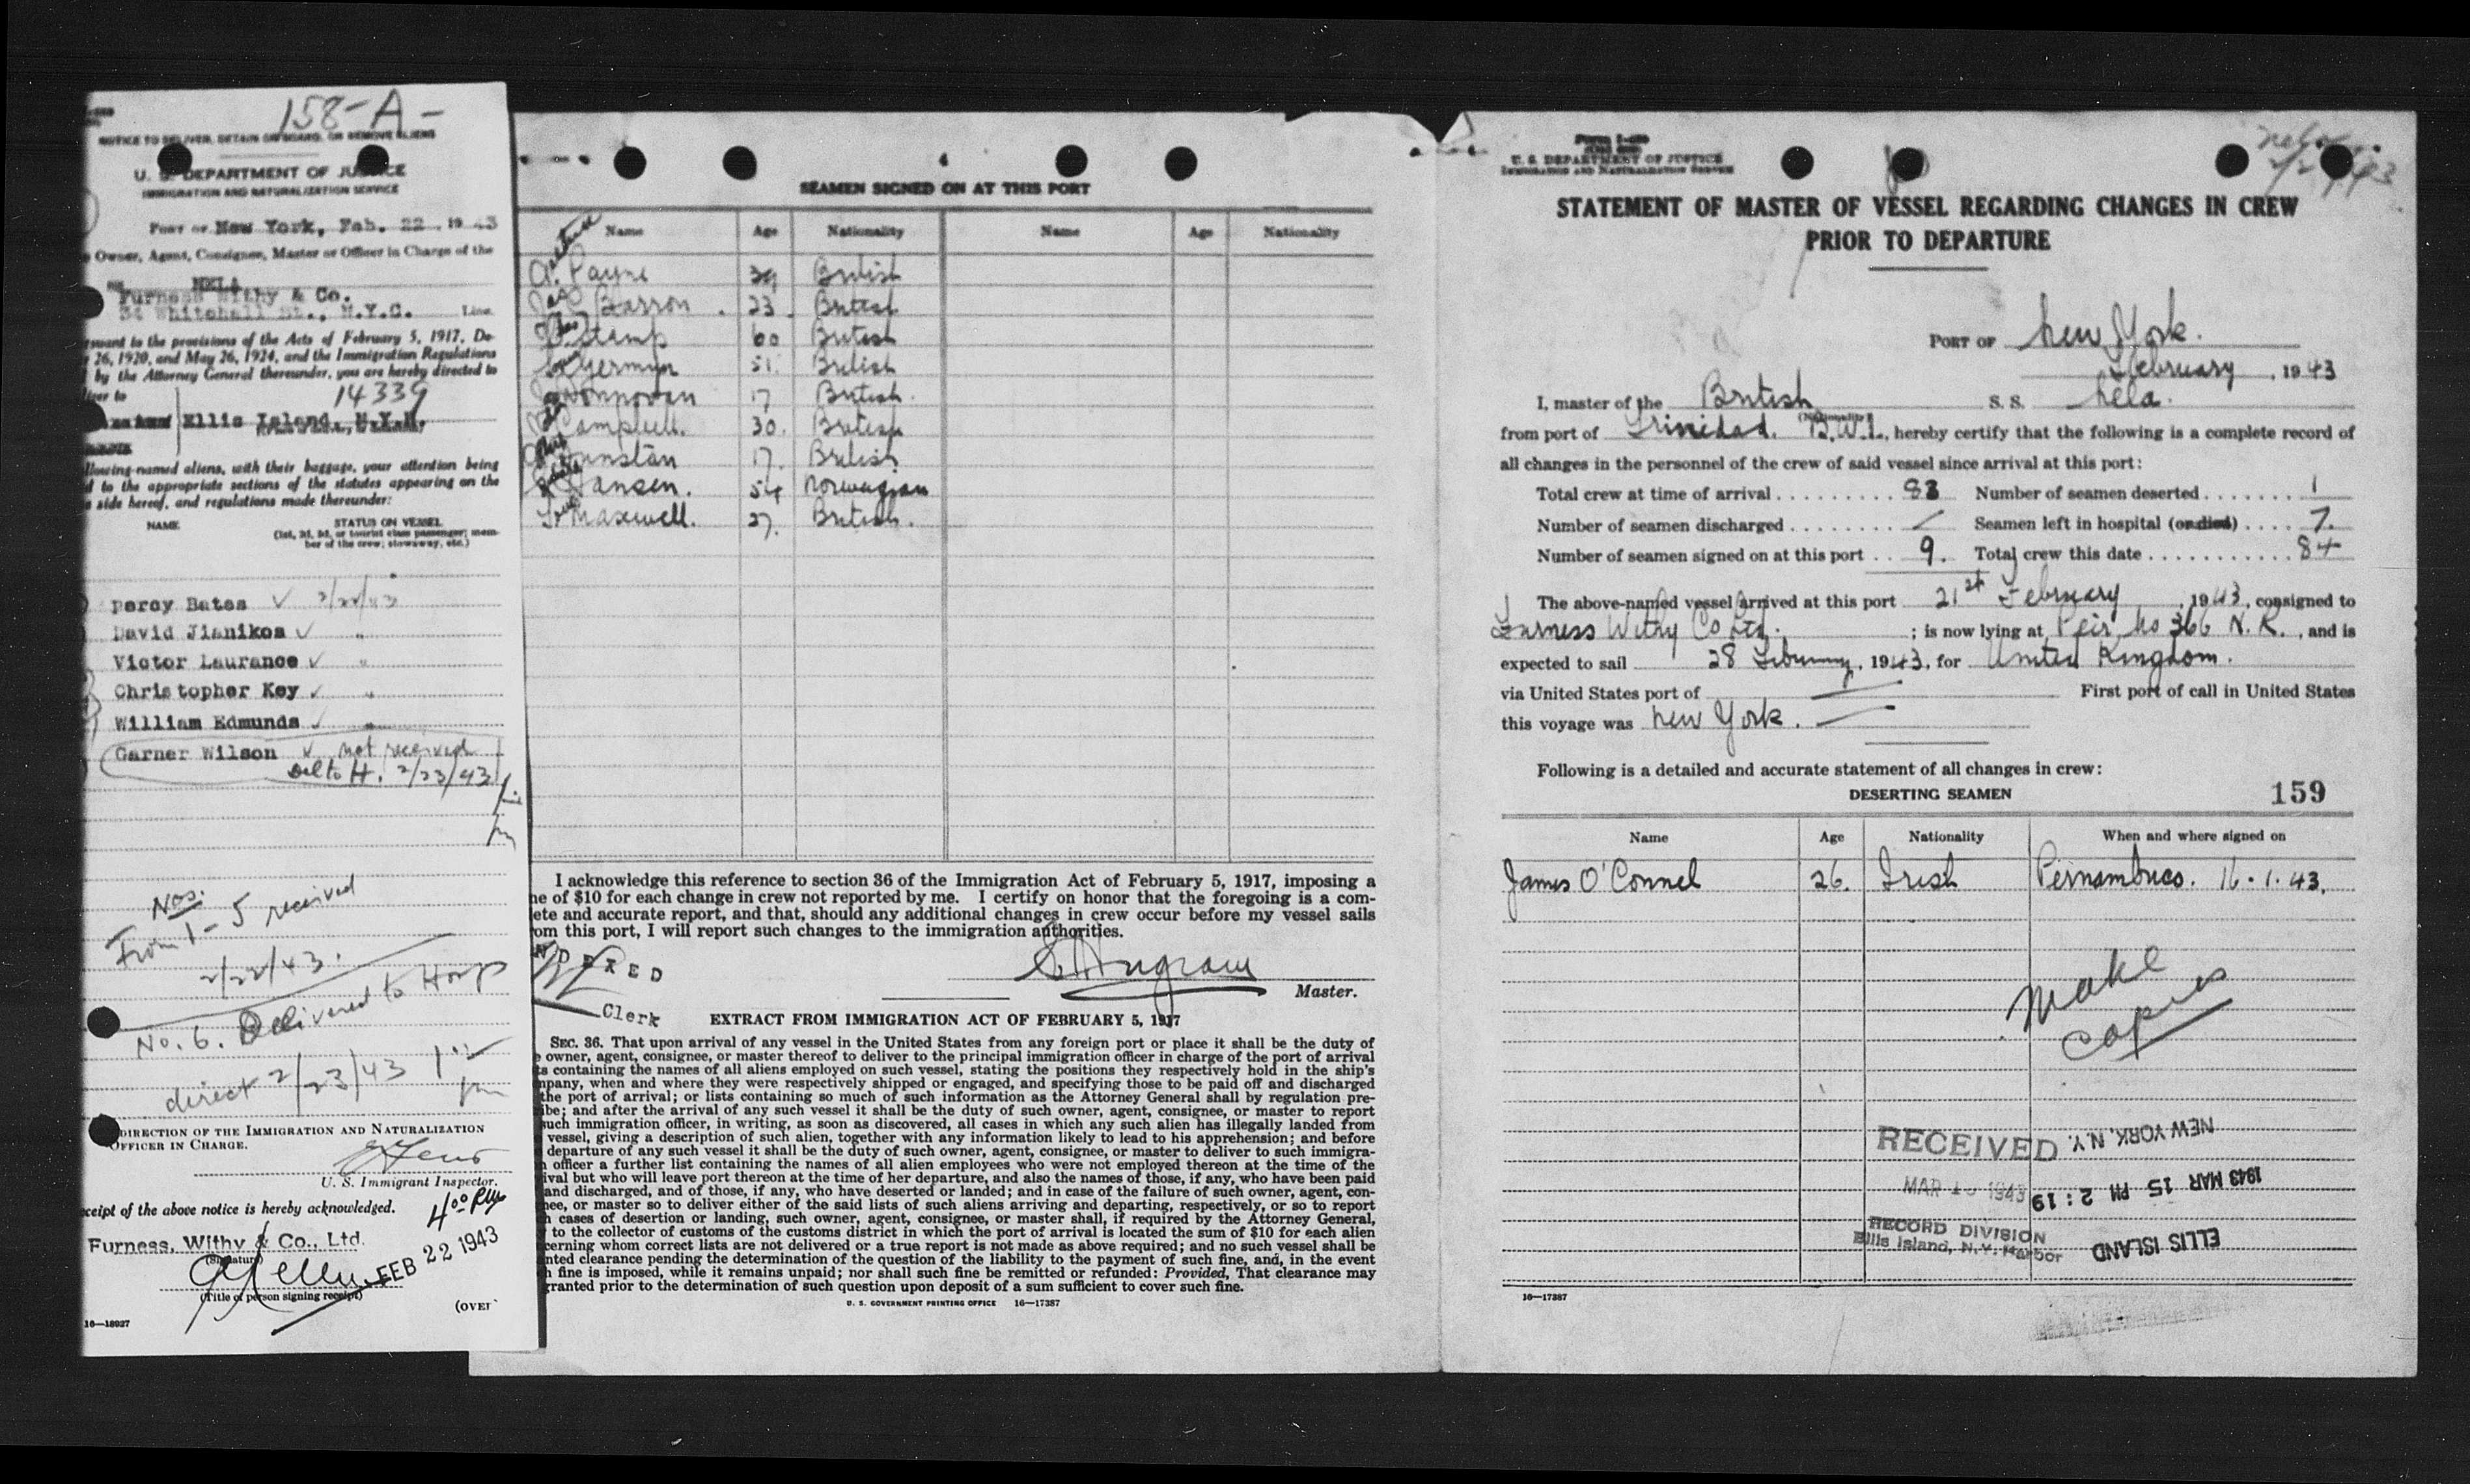 158-A-
NOTICE TO DELIVER, DETAIN ON BOARD, OR REMOVE ALIENS
U. S. DEPARTMENT OF JUSTICE
IMMIGRATION AND NATURALIZATION SERVICE
PORT OF New York, Feb. 22, 1943
Owner, Agent, Consignee, Master or Officer in Charge of the
NELA
Furness Withy & Co.
34 Whitehall St., N.Y.C. Line.
pursuant to the provisions of the Acts of February 5, 1917, De-
26, 1920, and May 26, 1924, and the Immigration Regulations
by the Attorney General thereunder, you are hereby directed to
14339
Ellis Island, N.Y.H.
following-named aliens, with their baggage, your attention being
d to the appropriate sections of the statutes appearing on the
side hereof, and regulations made thereunder:
NAME STATUS ON VESSEL
(1st, 2d, 3d, or tourist class passenger; mem-
ber of the crew; stowaway, etc.)
Percy Bates ✓ 2/22/43
David Jianikos ✓ "
Victor Laurance ✓ "
Christopher Key ✓ "
William Edmunds ✓ "
Garner Wilson ✓ not received
Del to H. 2/23/43
Nos.
From 1-5 received
2/22/43.
No. 6. Delivered to Hosp
direct 2/23/43 1 pm
DIRECTION OF THE IMMIGRATION AND NATURALIZATION
OFFICER IN CHARGE.
U. S. Immigrant Inspector.
4:00 PM
receipt of the above notice is hereby acknowledged.
Furness, Withy & Co., Ltd.
(Signature)
FEB 22 1943
(Title of person signing receipt)
(OVER
16—18927
SEAMEN SIGNED ON AT THIS PORT
Name Age Nationality Name Age Nationality
A. Payne 39 British
Barron 23 British
Stamp 60 British
Germyn 51 British
Donnovan 17 British
Campbell. 30. British
Dunstan 17. British
Hansen. 54 Norwegian
Maxwell. 27. British.
I acknowledge this reference to section 36 of the Immigration Act of February 5, 1917, imposing a
ne of $10 for each change in crew not reported by me. I certify on honor that the foregoing is a com-
ete and accurate report, and that, should any additional changes in crew occur before my vessel sails
om this port, I will report such changes to the immigration authorities.
NDEXED
Clerk
Ingram
Master.
EXTRACT FROM IMMIGRATION ACT OF FEBRUARY 5, 1917
SEC. 36. That upon arrival of any vessel in the United States from any foreign port or place it shall be the duty of
owner, agent, consignee, or master thereof to deliver to the principal immigration officer in charge of the port of arrival
ts containing the names of all aliens employed on such vessel, stating the positions they respectively hold in the ship's
mpany, when and where they were respectively shipped or engaged, and specifying those to be paid off and discharged
the port of arrival; or lists containing so much of such information as the Attorney General shall by regulation pre-
ibe; and after the arrival of any such vessel it shall be the duty of such owner, agent, consignee, or master to report
such immigration officer, in writing, as soon as discovered, all cases in which any such alien has illegally landed from
vessel, giving a description of such alien, together with any information likely to lead to his apprehension; and before
departure of any such vessel it shall be the duty of such owner, agent, consignee, or master to deliver to such immigra-
officer a further list containing the names of all alien employees who were not employed thereon at the time of the
ival but who will leave port thereon at the time of her departure, and also the names of those, if any, who have been paid
and discharged, and of those, if any, who have deserted or landed; and in case of the failure of such owner, agent, con-
nee, or master so to deliver either of the said lists of such aliens arriving and departing, respectively, or so to report
h cases of desertion or landing, such owner, agent, consignee, or master shall, if required by the Attorney General,
to the collector of customs of the customs district in which the port of arrival is located the sum of $10 for each alien
cerning whom correct lists are not delivered or a true report is not made as above required; and no such vessel shall be
nted clearance pending the determination of the question of the liability to the payment of such fine, and, in the event
h fine is imposed, while it remains unpaid; nor shall such fine be remitted or refunded: Provided, That clearance may
granted prior to the determination of such question upon deposit of a sum sufficient to cover such fine.
U. S. GOVERNMENT PRINTING OFFICE 16—17387
U. S. DEPARTMENT OF JUSTICE
IMMIGRATION AND NATURALIZATION SERVICE
STATEMENT OF MASTER OF VESSEL REGARDING CHANGES IN CREW
PRIOR TO DEPARTURE
PORT OF New York.
February, 1943
I, master of the British S. S. Nela.
(Nationality)
from port of Trinidad. B.W.I., hereby certify that the following is a complete record of
all changes in the personnel of the crew of said vessel since arrival at this port:
Total crew at time of arrival 83 Number of seamen deserted 1
Number of seamen discharged / Seamen left in hospital (or died) 7.
Number of seamen signed on at this port 9. Total crew this date 84
The above-named vessel arrived at this port 21st February, 1943, consigned to
Furness Withy Co Ltd. ; is now lying at Peir No 366 N. R., and is
expected to sail 28 February, 1943, for United Kingdom.
via United States port of — First port of call in United States
this voyage was New York. —
Following is a detailed and accurate statement of all changes in crew:
DESERTING SEAMEN 159
Name Age Nationality When and where signed on
James O'Connel 26. Irish Pernambuco. 16.1.43.
Make
Copies
RECEIVED
MAR 1943
RECORD DIVISION
Ellis Island, N.Y. Harbor
ELLIS ISLAND
1943 MAR 15 PM 2:19
NEW YORK, N.Y.
16—17387